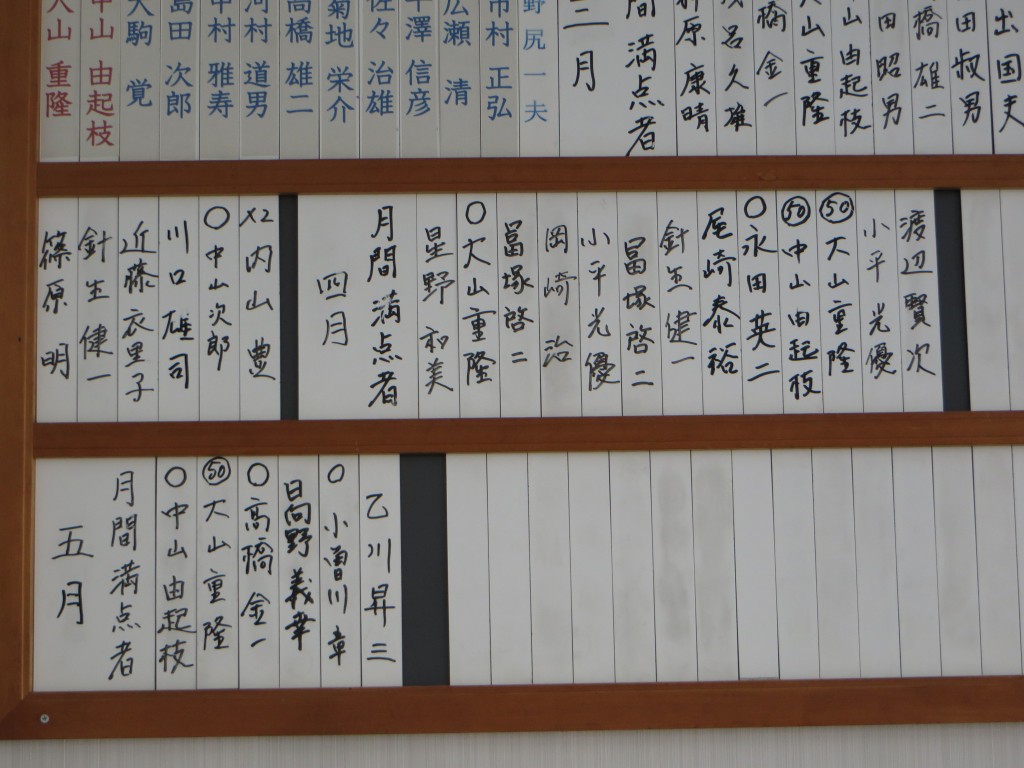 大山 重隆
中山 由起枝
大駒 覚
島田 次郎
中村 雅寿
河村 道男
高橋 雄二
菊地 栄介
佐々 治雄
平澤 信彦
広瀬 清
市村 正弘
野尻 一夫
三月
間満点者
原 康晴
呂久雄
橋金一
大山重隆
山由起枝
田昭男
橋雄二
田叔男
出国夫
篠原 明
針生健一
近藤衣里子
川口雄司
○中山次郎
×2内山 豊
四月
月間満点者
星野 和美
○大山重隆
冨塚啓二
岡崎 治
小平光優
冨塚啓二
針生健一
尾崎泰裕
○永田英二
㊿中山由起枝
㊿大山重隆
小平光優
渡辺賢次
五月
月間満点者
○中山由起枝
㊿大山重隆
○高橋金一
日向野義幸
○小曽川章
乙川昇三